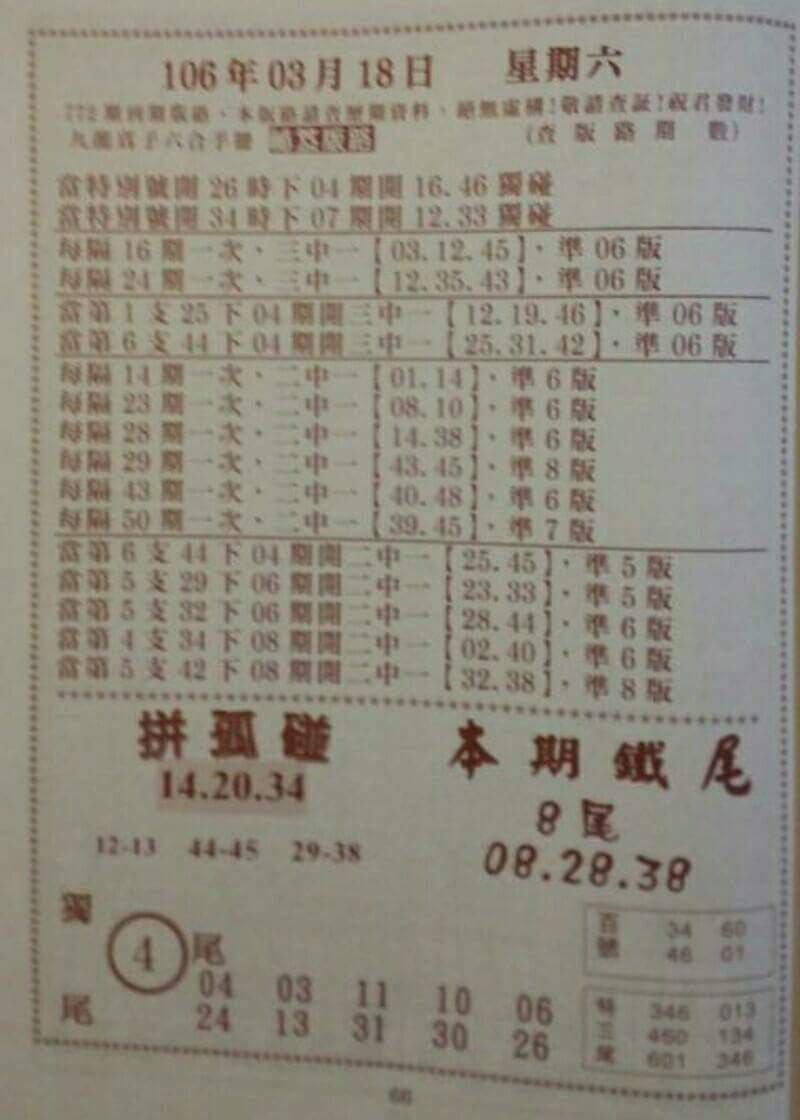 106年03月18日 星期六
772期別期版路、本版路請查歷期資料、絕無虛構!敬請查証!祝君發財!
九龍真手六合手冊 (查版路期數)
當特別號開26時下04期開16.46獨碰
當特別號開34時下07期開12.33獨碰
每隔16期一次、三中一【03.12.45】,準06版
每隔24期一次、三中一【12.35.43】,準06版
當第1支25下04期開三中一【12.19.46】,準06版
當第6支44下04期開三中一【25.31.42】,準06版
每隔14期一次、二中一【01.14】,準6版
每隔23期一次、二中一【08.10】,準6版
每隔28期一次、二中一【14.38】,準6版
每隔29期一次、二中一【43.45】,準8版
每隔43期一次、二中一【40.48】,準6版
每隔50期一次、二中一【39.45】,準7版
當第6支44下04期開二中一【25.45】,準5版
當第5支29下06期開二中一【23.33】,準5版
當第5支32下06期開二中一【28.44】,準6版
當第4支34下08期開二中一【02.40】,準6版
當第5支42下08期開二中一【32.38】,準8版
拼孤碰
14.20.34
12-13 44-45 29-38
本期鐵尾
8尾
08.28.38
獨
尾
4 尾
04 03 11 10 06
24 13 31 30 26
百號
34 60
46 01
特三尾
346 013
460 134
601 346
66